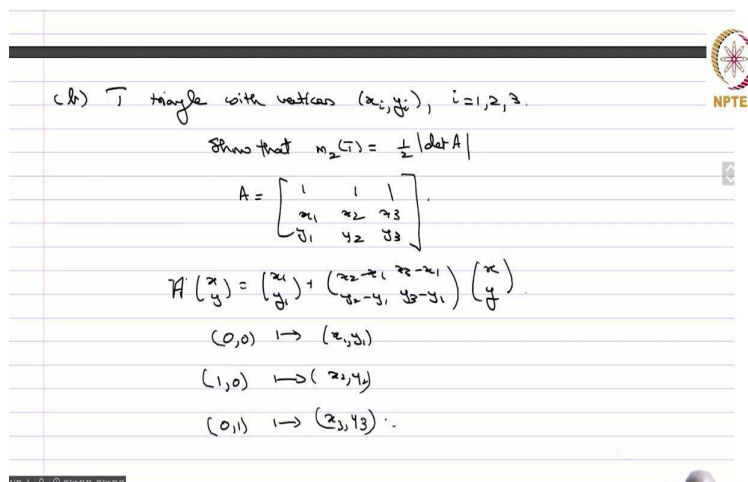 (b) T triangle with vertices (xᵢ, yᵢ), i=1,2,3.
NPTE
Show that m₂(T) = ½ |det A|
A = [ 1 1 1
x₁ x₂ x₃
y₁ y₂ y₃ ].
A (x y) = (x₁ y₁) + (x₂-x₁ x₃-x₁ y₂-y₁ y₃-y₁) (x y).
(0,0) ↦ (x₁,y₁)
(1,0) ↦ (x₂,y₂)
(0,1) ↦ (x₃,y₃).